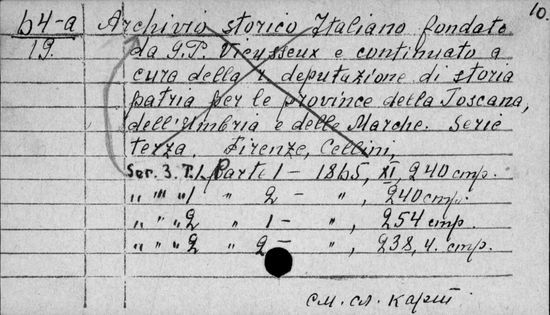 10.
b4-a Archivio storico Italiano fondato
19. da G.P. Vieusseux e continuato a
cura della r. deputazione di storia
patria per le province della Toscana,
dell'Umbria e delle Marche. Serie
terza. Firenze, Cellini,
Ser. 3. T.1. Parte 1 – 1865, XI, 240 стр.
„ „ „ 1 „ 2 – „ , 240 стр.
„ „ „ 2 „ 1 – „ , 254 стр.
„ „ „ 2 „ 2 – „ , 238, 4. стр.
см. сл. карт.